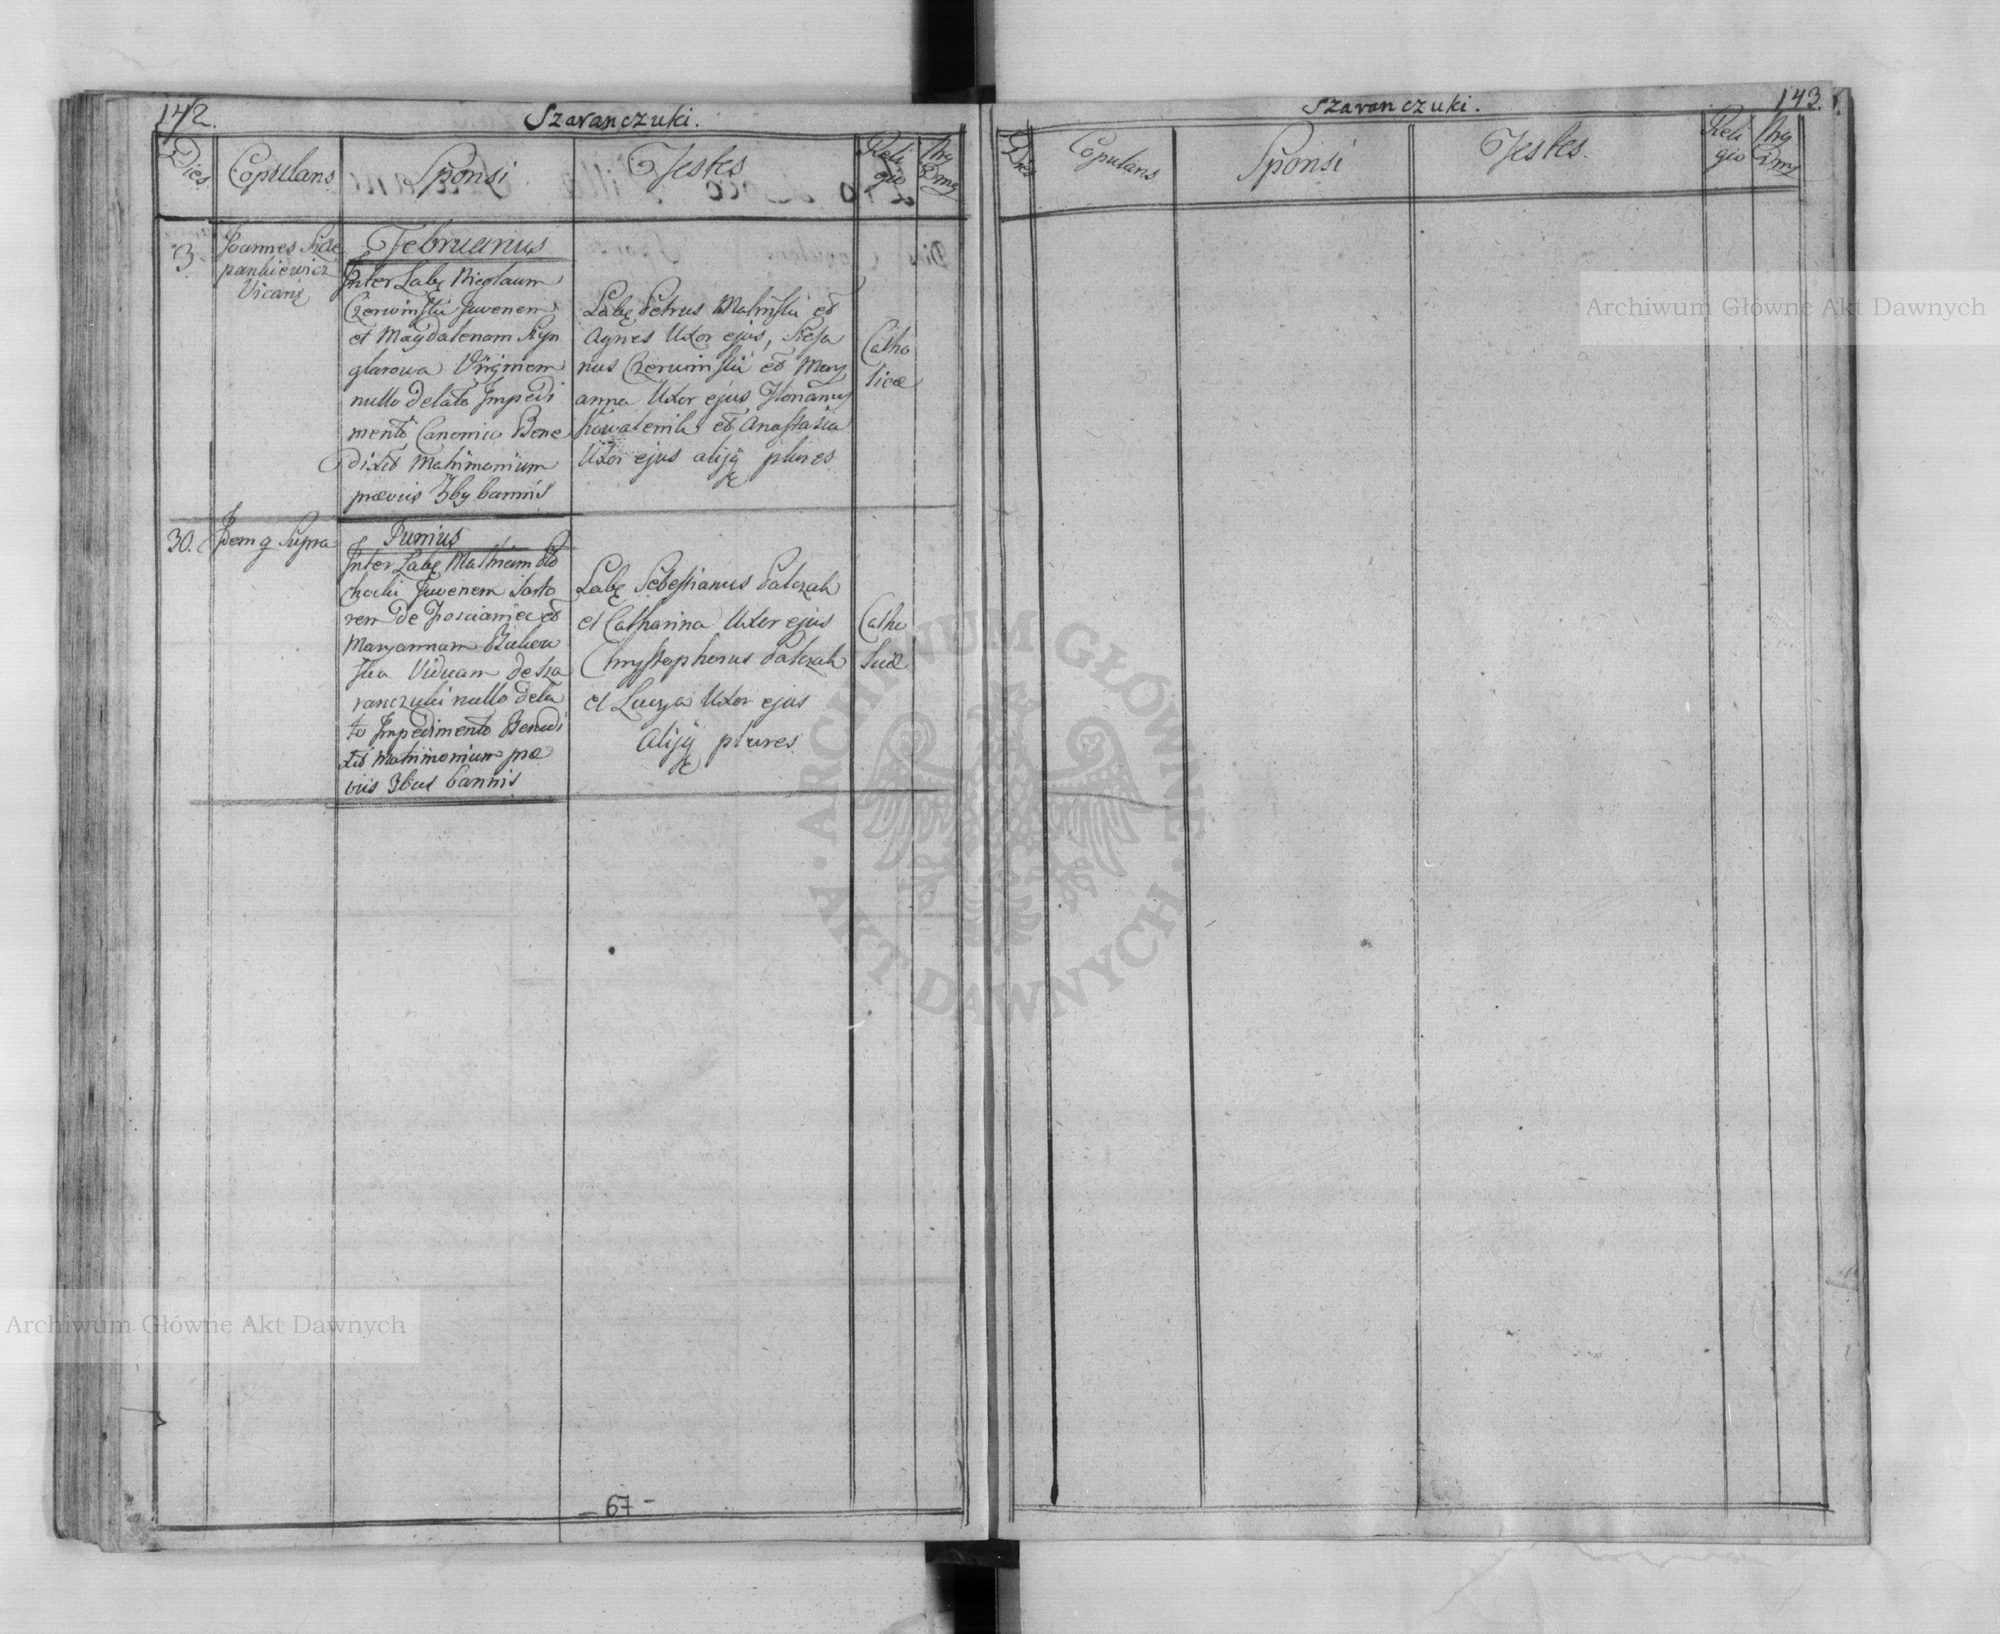 142.
Szaranczuki.
Dies
Copulans
Sponsi
Testes
Reli
gio
3.
Joannes
pankiewicz
Vicariꝰ
Februarius
Inter Labꝰ Nicolaum
Czerwinski Juvenem
et Magdalenam
glarowa Virginem
nullo delato Impedi
mento Canonico Bene
dixit Matrimonium
præviis 3bꝰ bannis
Labꝰ Petrus Malinski et
Agnes Uxor ejus, Stefa
nus Czerwinski et Mary
anna Uxor ejus Florianus
Kowalenik et Anastazia
Uxor ejus alijq̄ plures
Catho
licæ
30.
Idem q Supra
Junius
Inter Labꝰ Mathiam
chocki Juvenem Sarto
rem de et
Maryannam
ska Viduam de Sza
ranczuki nullo dela
to Impedimento Benedi
xit Matrimonium præ
viis 3bus bannis
Labꝰ Sebestianus Palczak
et Catharina Uxor ejus
Chrystophorus Palczak
et Lucya Uxor ejus
alijq̄ plures
Catho
licæ
- 67 -
Szaranczuki.
143.
Dies
Copulans
Sponsi
Testes.
Reli
gio
Archiwum Główne Akt Dawnych
Archiwum Główne Akt Dawnych
ARCHIWUM GŁÓWNE
AKT DAWNYCH